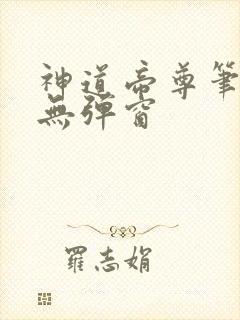 神道帝尊筆
無彈窗
羅志娟